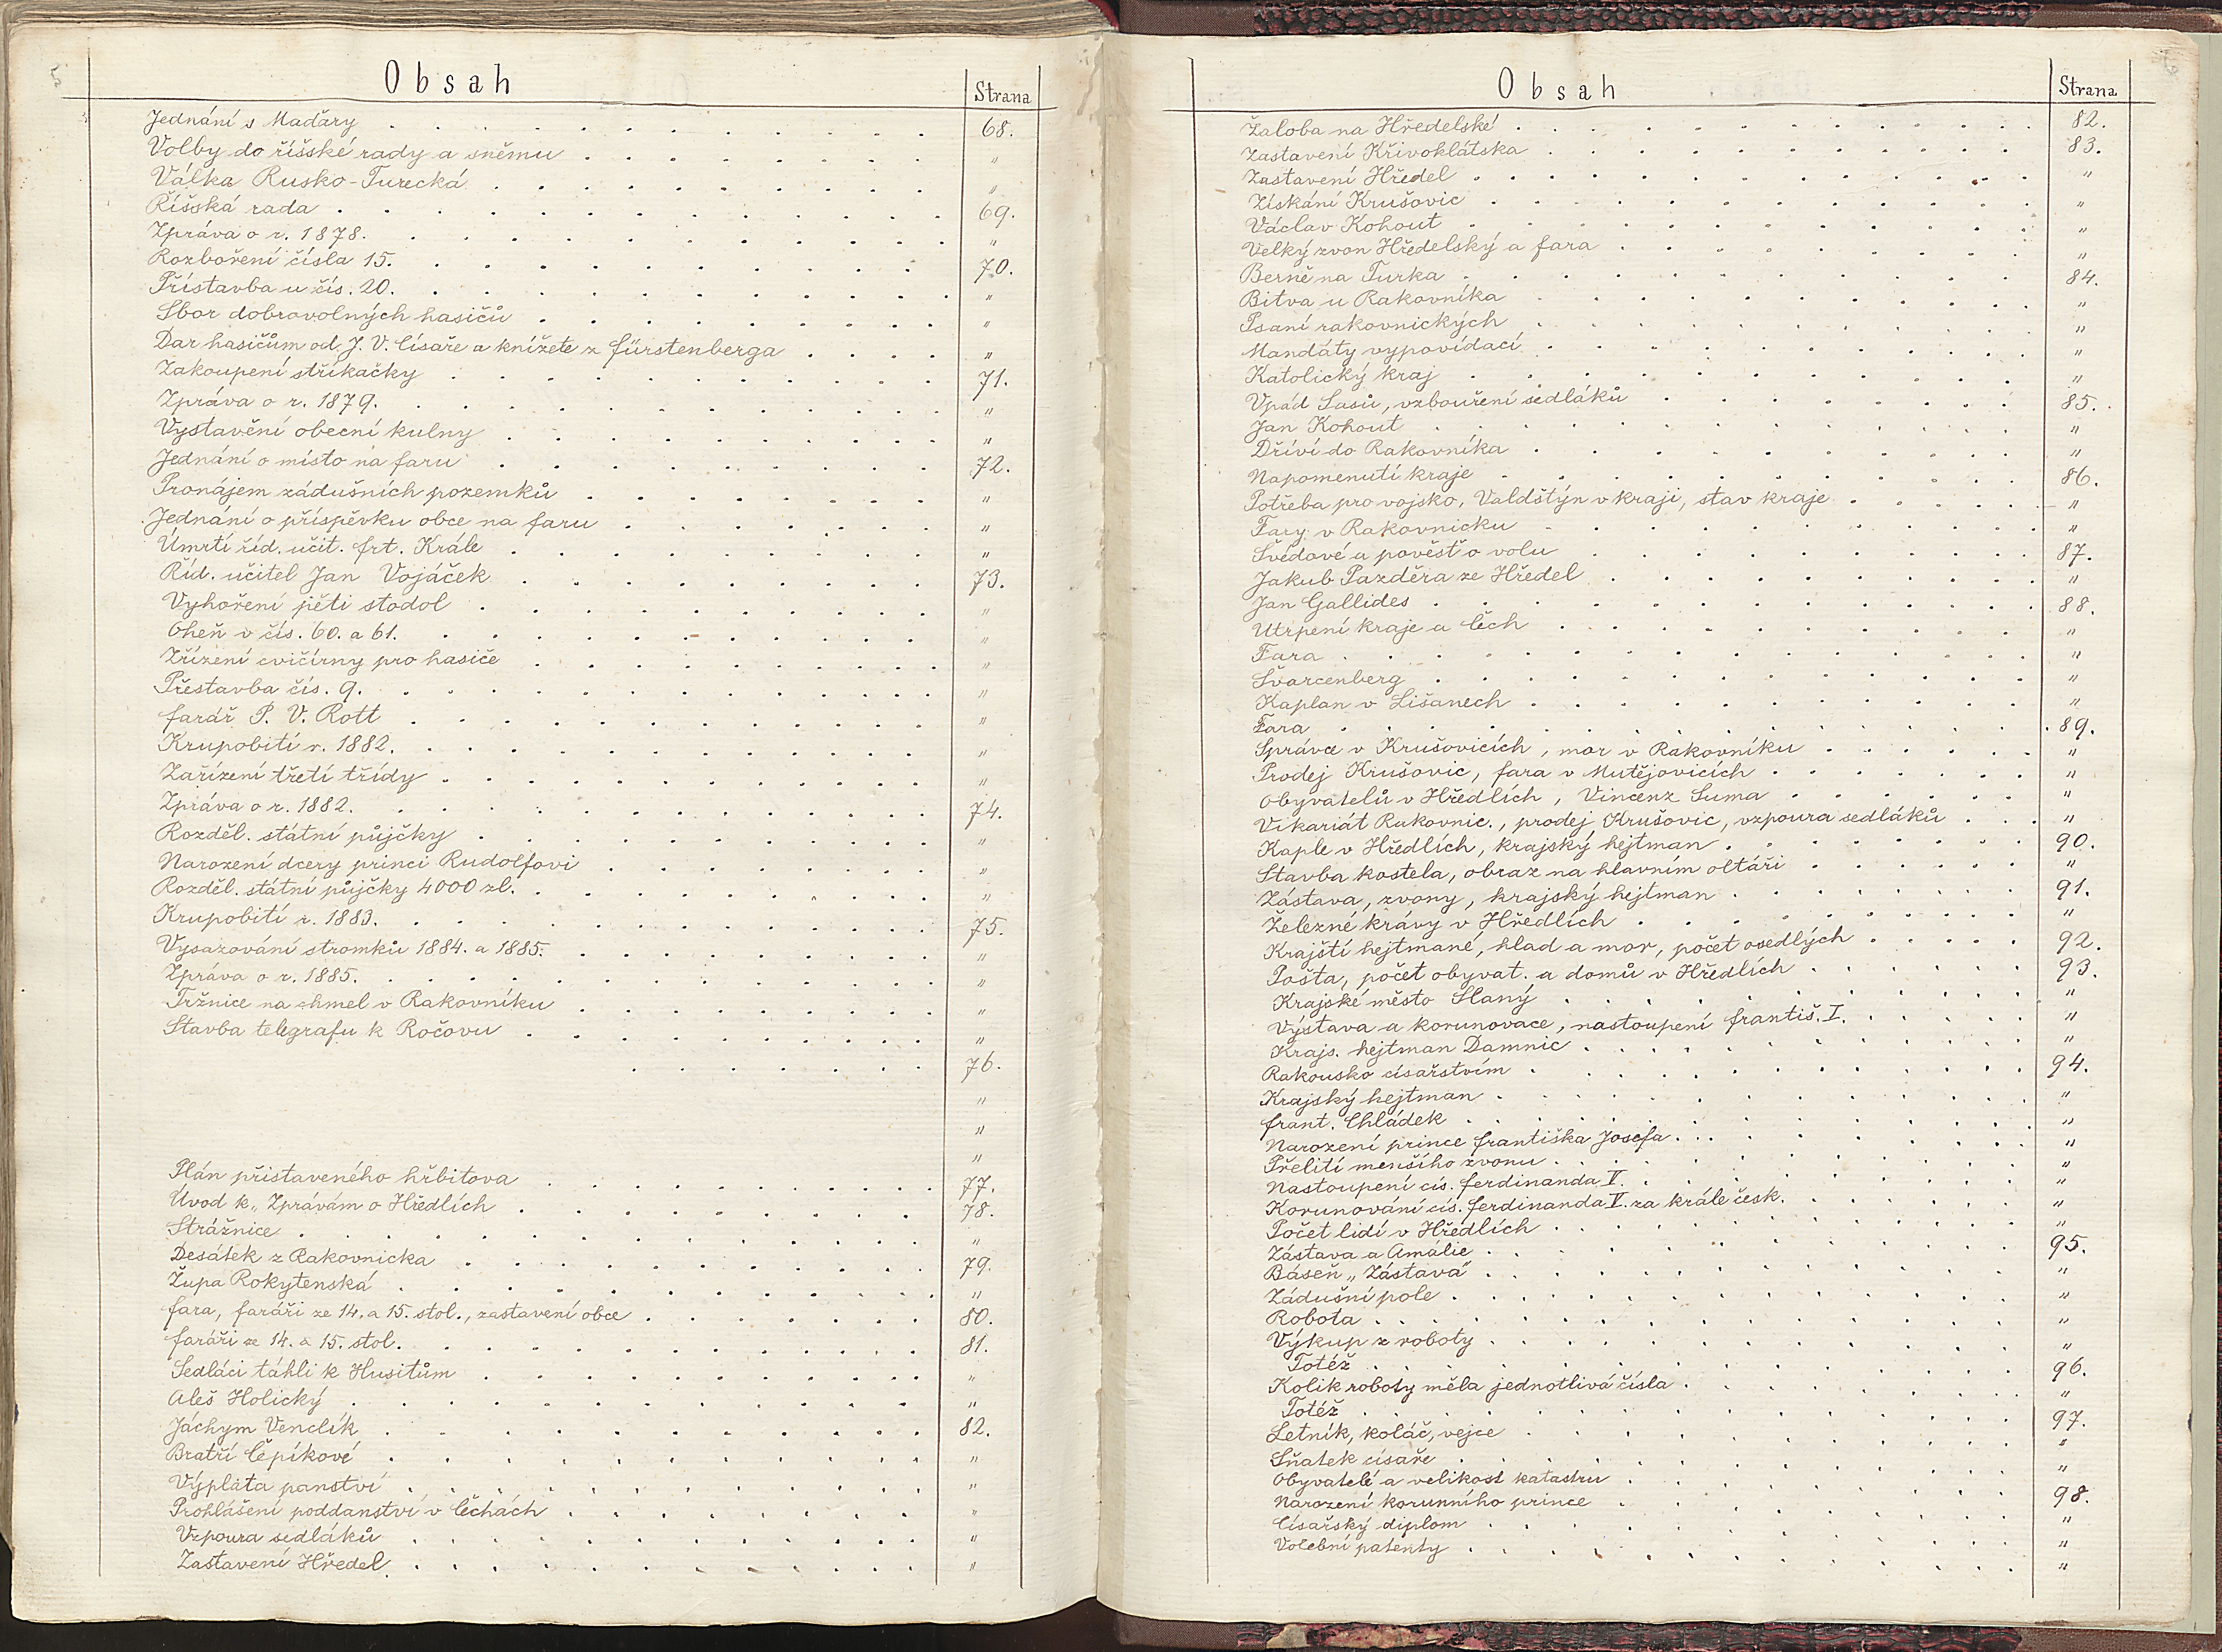 5
Obsah Strana
Jednání s Maďary . . . 68.
Volby do říšské rady a sněmu . . . "
Válka Rusko-Turecká . . . "
Říšská rada . . . 69.
Zpráva o r. 1878. . . . "
Rozboření čísla 15. . . . 70.
Přístavba u čís. 20. . . . "
Sbor dobrovolných hasičů . . . "
Dar hasičům od J. V. Císaře a knížete z Fürstenberga . . . "
Zakoupení stříkačky . . . 71.
Zpráva o r. 1879. . . . "
Vystavění obecní kulny . . . "
Jednání o místo na faru . . . 72.
Pronájem zádušních pozemků . . . "
Jednání o příspěvku obce na faru . . . "
Úmrtí říd. učit. Frt. Krále . . . "
Říd. učitel Jan Vojáček . . . 73.
Vyhoření pěti stodol . . . "
Oheň v čís. 60. a 61. . . . "
Zřízení cvičírny pro hasiče . . . "
Přestavba čís. 9. . . . "
Farář P. V. Rott . . . "
Krupobití r. 1882. . . . "
Zařízení třetí třídy . . . "
Zpráva o r. 1882. . . . 74.
Rozděl. státní půjčky . . . "
Narození dcery princi Rudolfovi . . . "
Rozděl. státní půjčky 4000 zl. . . . "
Krupobití r. 1883. . . . 75.
Vysazování stromků 1884. a 1885. . . . "
Zpráva o r. 1885. . . . "
Tržnice na chmel v Rakovníku . . . "
Stavba telegrafu k Ročovu . . . "
. . . 76.
"
"
"
Plán přistaveného hřbitova . . . 77.
Úvod k „Zprávám o Hředlích . . . 78.
Strážnice . . . "
Desátek z Rakovnicka . . . 79.
Župa Rokytenská . . . "
Fara, faráři ze 14. a 15. stol., zastavení obce . . . 80.
Faráři ze 14. a 15. stol. . . . 81.
Sedláci táhli k Husitům . . . "
Aleš Holický . . . "
Jáchym Venclík . . . 82.
Bratří Čepíkové . . . "
Výplata panství . . . "
Prohlášení poddanství v Čechách . . . "
Vzpoura sedláků . . . "
Zastavení Hředel . . . "
6
Obsah Strana
Žaloba na Hředelské . . . 82.
Zastavení Křivoklátska . . . 83.
Zastavení Hředel . . . "
Získání Krušovic . . . "
Václav Kohout . . . "
Velký zvon Hředelský a fara . . . "
Berně na Turka . . . 84.
Bitva u Rakovníka . . . "
Psaní rakovnických . . . "
Mandáty vypovídací . . . "
Katolický kraj . . . "
Vpád Sasů, vzbouření sedláků . . . 85.
Jan Kohout . . . "
Dříví do Rakovníka . . . "
Napomenutí kraje . . . 86.
Potřeba pro vojsko, Valdštýn v kraji, stav kraje . . . "
Fary v Rakovnicku . . . "
Švédové a pověsť o volu . . . 87.
Jakub Pazděra ze Hředel . . . "
Jan Gallides . . . 88.
Utrpení kraje a Čech . . . "
Fara . . . "
Švarcenberg . . . "
Kaplan v Lišanech . . . "
Fara . . . 89.
Správce v Krušovicích, mor v Rakovníku . . . "
Prodej Krušovic, fara v Mutějovicích . . . "
Obyvatelů v Hředlích, Vincenz Suma . . . "
Vikariát Rakovnic., prodej Krušovic, vzpoura sedláků . . . "
Kaple v Hředlích, krajský hejtman . . . 90.
Stavba kostela, obraz na hlavním oltáři . . . "
Zástava, zvony, krajský hejtman . . . 91.
Železné krávy v Hředlích . . . "
Krajští hejtmané, hlad a mor, počet osedlých . . . 92.
Pošta, počet obyvat. a domů v Hředlích . . . 93.
Krajské město Slaný . . . "
Výstava a korunovace, nastoupení Františ. I. . . . "
Krajs. hejtman Damnic . . . "
Rakousko císařstvím . . . 94.
Krajský hejtman . . . "
Frant. Chládek . . . "
Narození prince Františka Josefa . . . "
Přelití menšího zvonu . . . "
Nastoupení cís. Ferdinanda V. . . . "
Korunování cís. Ferdinanda V. za krále česk. . . . "
Počet lidí v Hředlích . . . "
Zástava a Amálie . . . 95.
Báseň „Zástava" . . . "
Zádušní pole . . . "
Robota . . . "
Výkup z roboty . . . "
Totéž . . . 96.
Kolik roboty měla jednotlivá čísla . . . "
Totéž . . . 97.
Letník, koláč, vejce . . . "
Sňatek císaře . . . "
Obyvatelé a velikost katastru . . . "
Narození korunního prince . . . 98.
Císařský diplom . . . "
Volební patenty . . . "
"